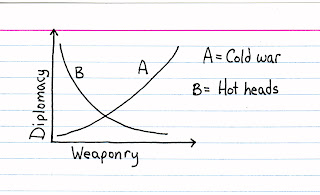 A = Cold war
B = Hot heads
Diplomacy
B
A
Weaponry